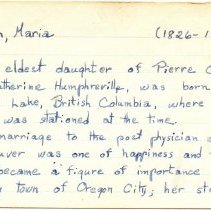 n, Maria (1826-1
eldest daughter of Pierre C
atherine Humphreville, was born
Lake, British Columbia, where
was stationed at the time.
marriage to the post physician a
uver was one of happiness and
became a figure of importance
town of Oregon City; her sto